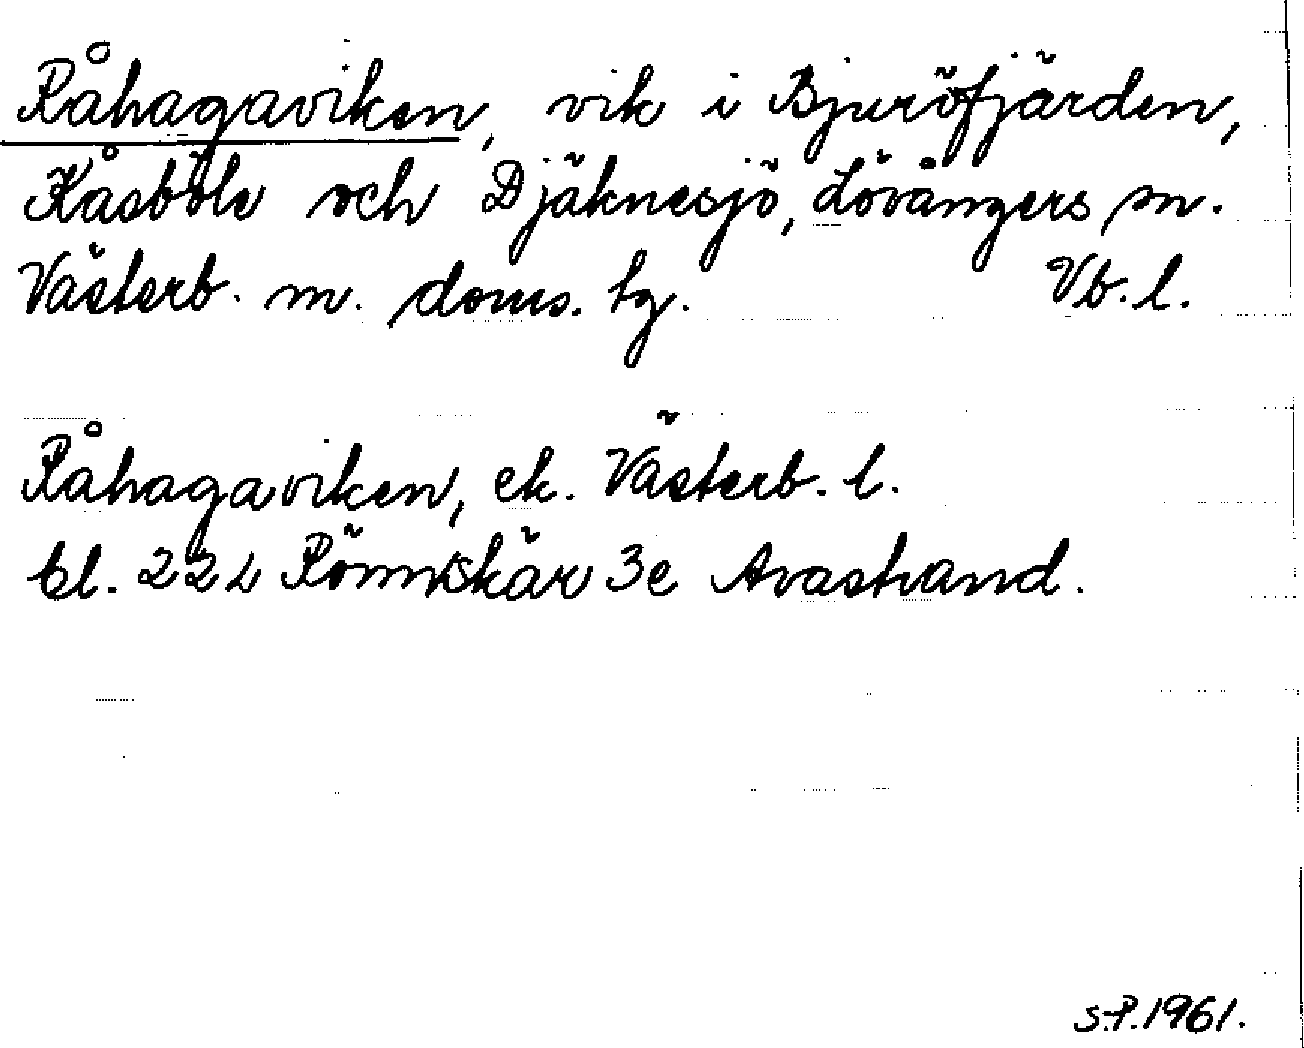 Råhagaviken, vik i Bjuröfjärden,
Kåsböle och Djäknesjö, Lövångers sn.
Västerb. m. doms. tg. Vb. l.
Råhagaviken, ek. Västerb. l.
bl. 222 Rönnskär 3e Avastrand.
S.P. 1961.